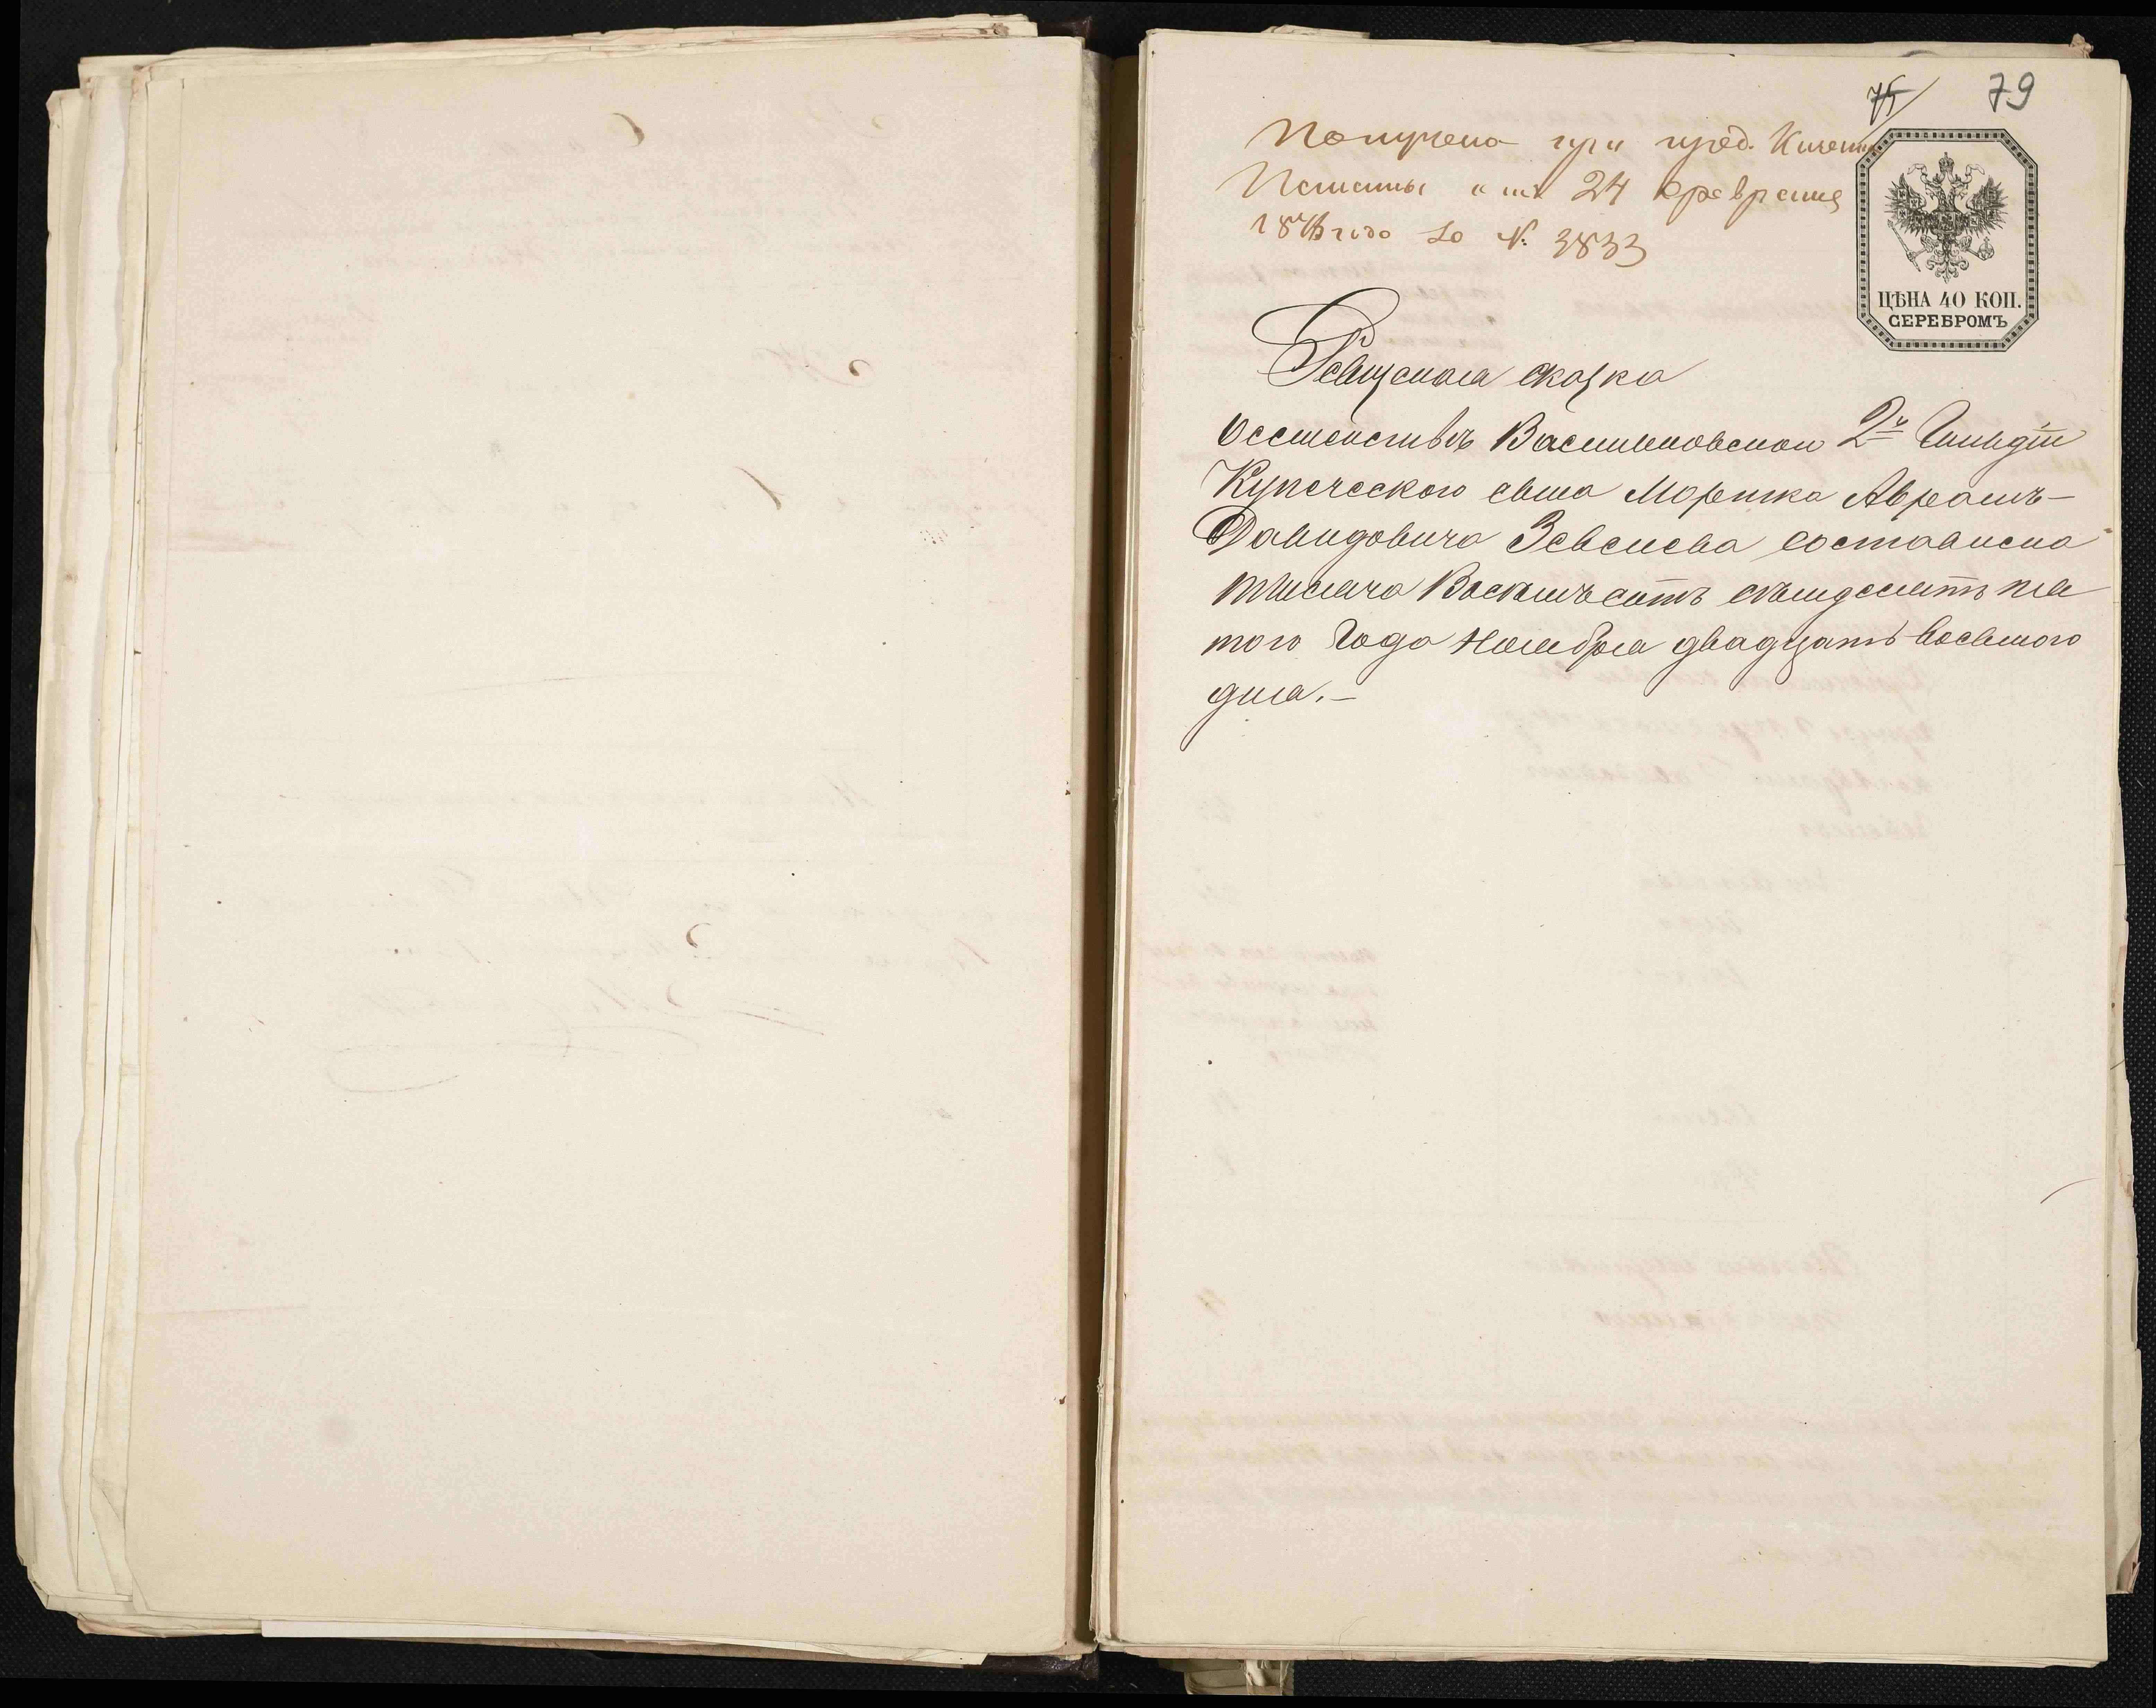 75
79
Получена при пред. Казенной
Палаты отъ 24 Февраля
1876 года за №: 3833
ЦѢНА 40 КОП.
СЕРЕБРОМЪ
Ревизская сказка
о семействѣ Васильковскаго 2й Гильдіи
Купеческаго сына Морҍдка Аврамъ-
Давидовича Зевелева составлена
тысяча восемьсотъ семдесятъ пя
того Года Ноября двадцать восьмого
дня.—